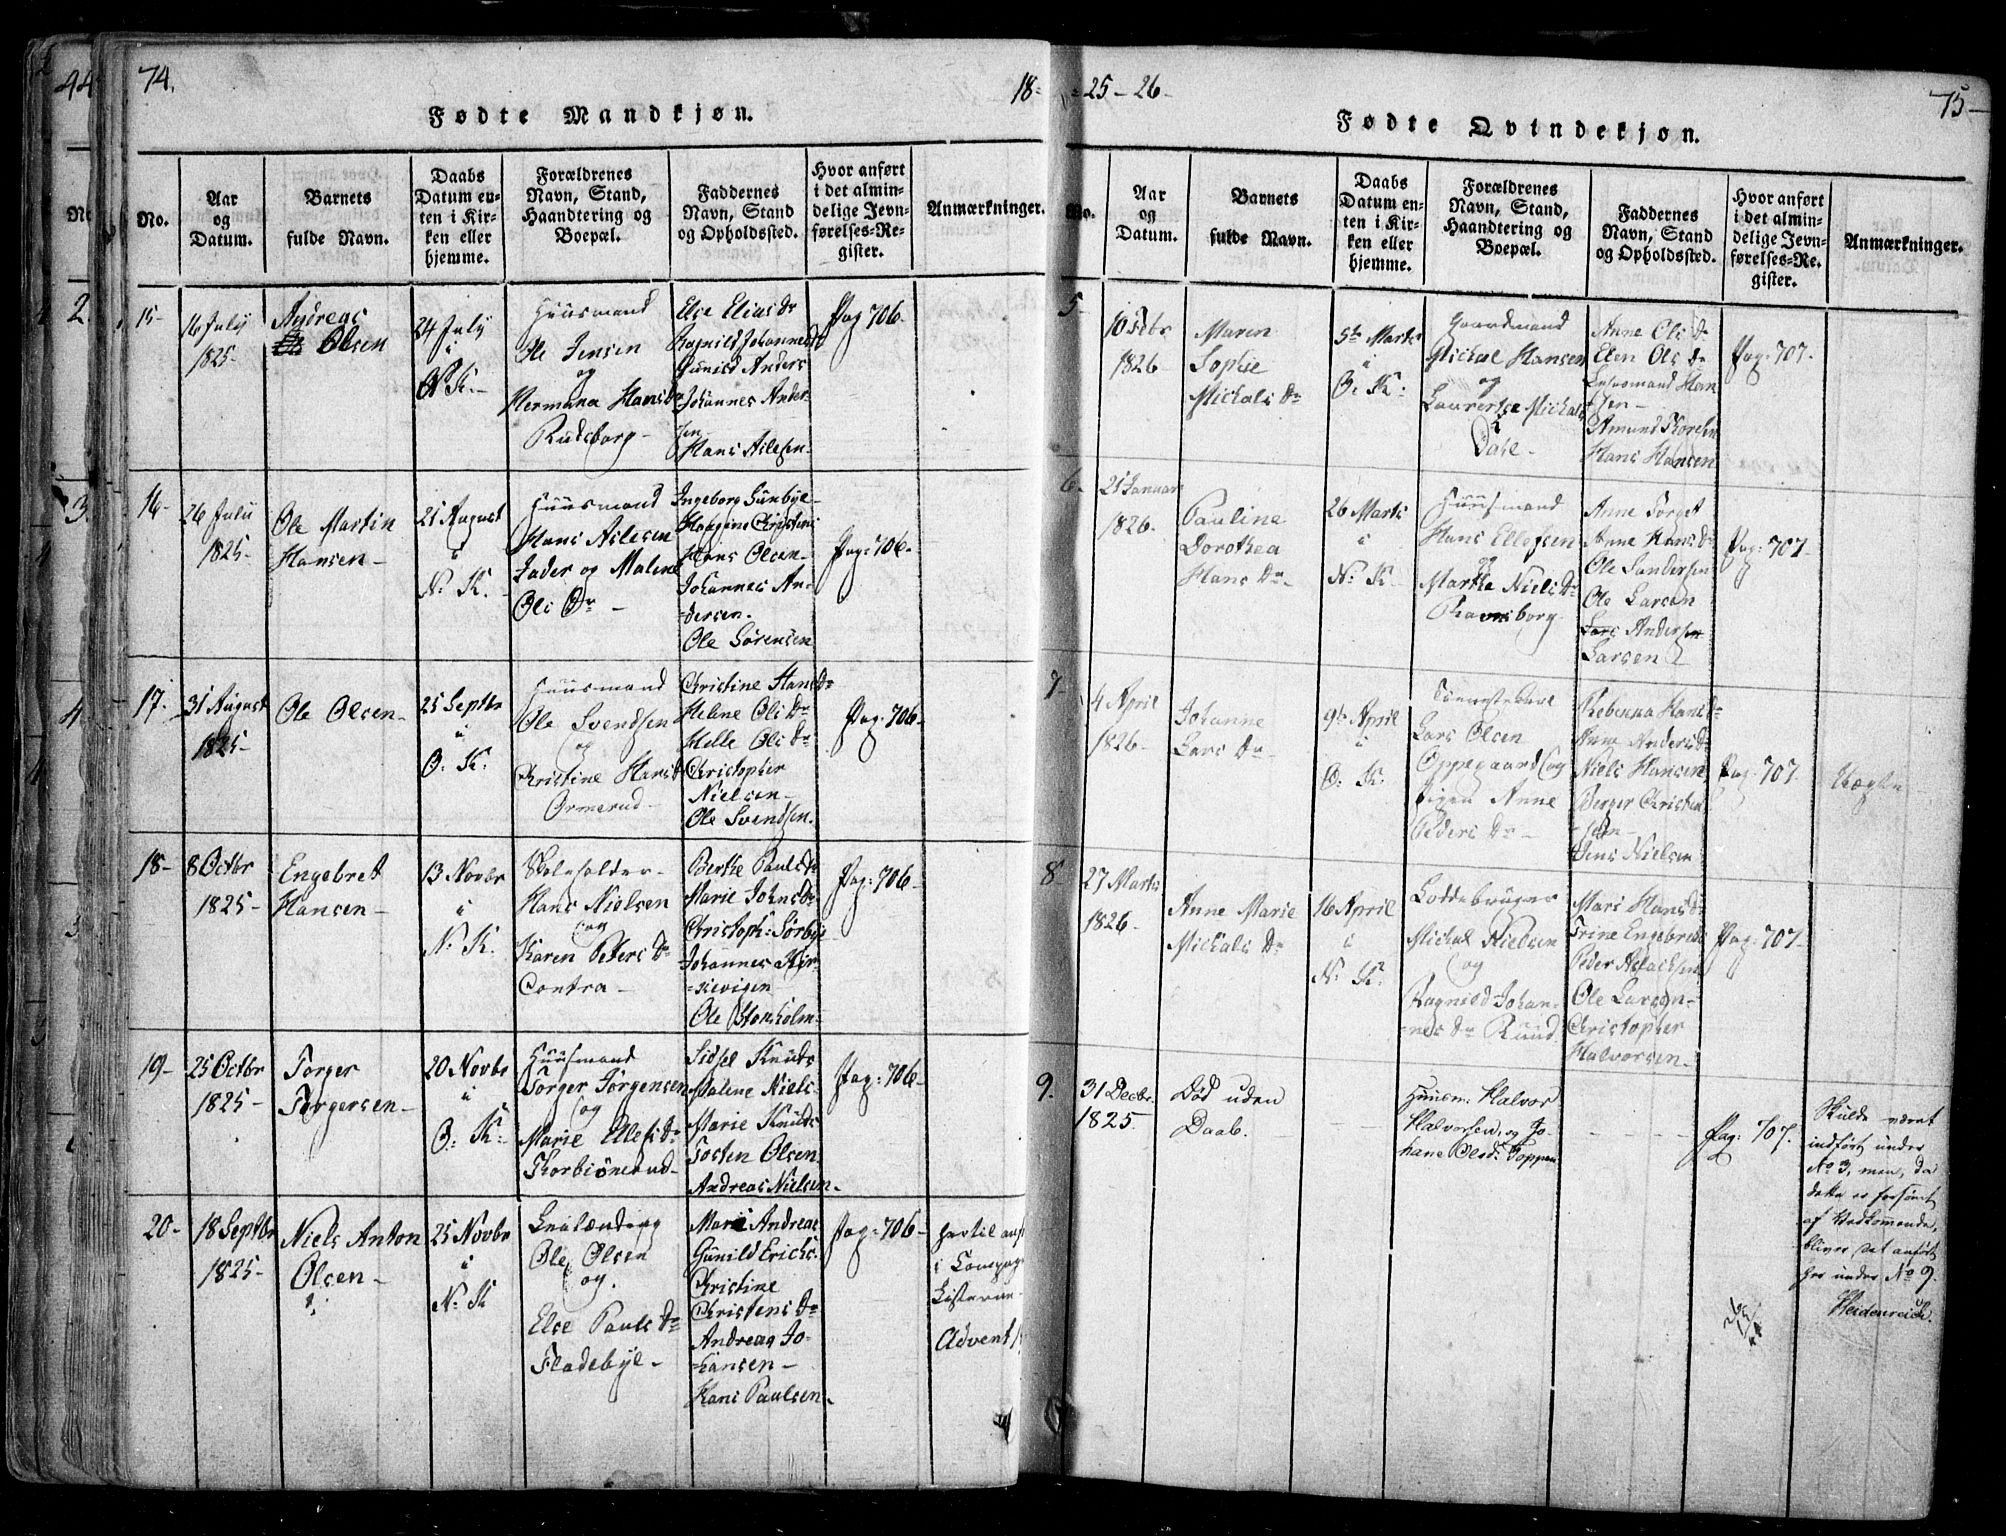 74.
18-
Fødte Mandkjøn.
No.
Aar
og
Datum.
Barnets
fulde Navn.
Daabs
Datum en-
ten i Kir-
ken eller
hjemme.
Forældrenes
Navn, Stand,
Haandtering og
Boepæl.
Faddernes
Navn, Stand
og Opholdssted.
Hvor anført
i det almin-
delige Jevn-
førelses-Re-
gister.
Anmærkninger.
15-
16 July
1825-
Andreas
Olsen
24 July
i
N. K.-
Huusmand
Ole Jensen
og
Hermana Hansdr
Rudsborg-
Else Eliasdr
Ragnild Johannesdr
Gunild Anders
Johannes Ander-
sen-
Hans Aslesen-
Pag 706-
16-
26 July
1825-
Ole Martin
Hansen-
21 August
i
N: K.
Huusmand
Hans Aslesen
Jader og Malene
Ols Dr-
Ingeborg Sunbye-
Haagine Christens
Hans Olsen-
Johannes An-
dersen-
Ole Sørensen
Pag: 706-
17-
31 August
1825-
Ole Olsen-
25 Septbr
i
O: K.
Huusmand
Ole Svendsen
og
Christine Hansdr
Ormerud-
Christine Hansdr
Helene Ols Dr
Helle Ols Dr
Christopher
Nielsen-
Ole Svendsen.
Pag: 706-
18-
8 Octbr
1825-
Engebret
Hansen-
13 Novbr
i
N: K.
Skoleholder-
Hans Nielsen
og
Karen Peters Dr
Contra-
Berthe Paulsdr
Marie Johnsdr
Christoph: Sørbye
Johannes Kir-
-kevigen
Ole Stensholm-
Pag: 706-
19-
25 Octbr
1825-
Torger
Torgersen-
20 Novbr
i
O: K:
Huusmand
Torger Jørgensen
og
Marie Ellefsdr
Thorbiønerud-
Sidsel Knuds
Malene Niels-
Marie Knuds
Tosten Olsen
Andreas Nielsen-
Pag: 706-
20-
18 Septbr
1825-
Niels Anton
Olsen-
25 Novbr
i
N: K
Leilænding
Ole Olsen
og.
Else Pauls Dr
Fladebye-
Mari Andreas
Gunild Erichs.
Christine
Christens Dr
Andreas Jo-
hansen-
Hans Paulsen-
Pag: 706-
i Compag
Listerne-
Advent
-25-26-
75-
Fødte Qvindekjøn.
No.
Aar
og
Datum.
Barnets
fulde Navn.
Daabs
Datum en-
ten i Kir-
ken eller
hjemme.
Forældrenes
Navn, Stand,
Haandtering og
Boepæl.
Faddernes
Navn, Stand
og Opholdssted.
Hvor anført
i det almin-
delige Jevn-
førelses-Re-
gister.
Anmærkninger.
5-
10 Febr
1826-
Maren
Sophie
Michals Dr
5te Marts
i
O: K:
Gaardmand
Michal Hansen
og
Laurentse Michals
Dahl-
Anne Ols Dr
Elen Ols Dr
Han
-sen-
Amund Thoresen
Hans Hansen
Pag: 707-
6-
21 Januar
1826-
Pauline
Dorothea
Hans Dr-
26 Marts
i
N: K-
Huusmand
Hans Ellefsen
og
Marthe Niels Dr
Ravnsborg
Anne Torget
Anne Hans Dr
Ole Sandersen
Ole Larsen
Lars Andersen
Larsen
Pag: 707-
7-
4 April
1826-
Johanne
Lars Dr-
9de April
i
O: K.
Lars Olsen
Oppegaard og
Pigen Anne
Peders Dr-
Rebecca Hans Dr
Anne Anders Dr
Niels Hansen
Berger Christen
-sen-
Jens Nielsen
Pag: 707.
Uægte
8-
27 Marts
1826-
Anne Marie
Michals Dr
16 April
i
N: K:
Loddebruger
Michal Nielsen
og
Ragnild Johan-
nes Dr Ruud
Mari Hans Dr
Trine Engebrets
Peder Aslachsen
Ole Larsen-
Christopher
Halvorsen-
Pag: 707-
9.
31 Decbr.
1825.
Død uden
Daab.
Huusm: Halvor
Halvorsen, og Jo-
hane Olsdr Toppen
Pag: 707.
Skulde været
indført under
No 3, men, da
dette er forsømt
af Vedkomende,
bliver det anført
her under No 9.
Heidenreich.